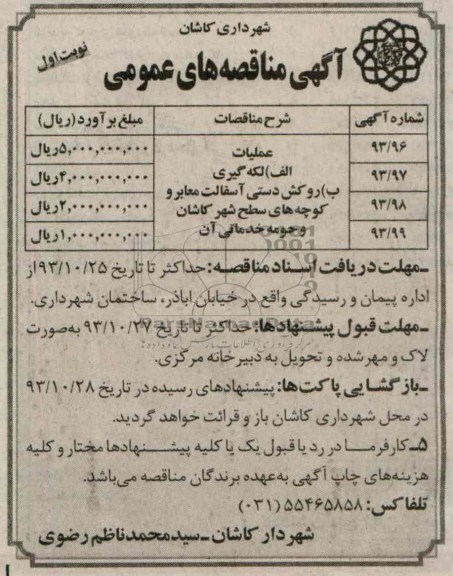 شهرداری کاشان
نوبت اول
آگهی مناقصه‌های عمومی
شماره آگهی شرح مناقصات مبلغ برآورد (ریال)
۹۳/۹۶ عملیات ۵,۰۰۰,۰۰۰,۰۰۰ریال
۹۳/۹۷ الف)لکه گیری ۴,۰۰۰,۰۰۰,۰۰۰ریال
ب)روکش دستی آسفالت معابر و
۹۳/۹۸ کوچه‌های سطح شهر کاشان ۲,۰۰۰,۰۰۰,۰۰۰ریال
۹۳/۹۹ و حومه خدماتی آن ۱,۰۰۰,۰۰۰,۰۰۰ریال
ـمهلت دریافت اسناد مناقصه: حداکثر تا تاریخ ۹۳/۱۰/۲۵ از
اداره پیمان و رسیدگی واقع در خیابان اباذر، ساختمان شهرداری.
ـمهلت قبول پیشنهادها: حداکثر تا تاریخ ۹۳/۱۰/۲۷ به‌صورت
لاک و مهر شده و تحویل به دبیرخانه مرکزی.
ـبازگشایی پاکت‌ها: پیشنهادهای رسیده در تاریخ ۹۳/۱۰/۲۸
در محل شهرداری کاشان باز و قرائت خواهد گردید.
۵ـ کارفرما در رد یا قبول یک یا کلیه پیشنهادها مختار و کلیه
هزینه‌های چاپ آگهی به‌عهده برندگان مناقصه می‌باشد.
تلفاکس: ۵۵۴۶۵۸۵۸ (۰۳۱)
شهردار کاشان ـ سیدمحمدناظم رضوی